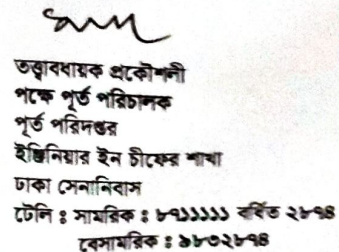 তত্ত্বাবধায়ক প্রকৌশলী
পক্ষে পূর্ত পরিচালক
পূর্ত পরিদপ্তর
ইঞ্জিনিয়ার ইন চীফের শাখা
ঢাকা সেনানিবাস
টেলি : সামরিক : ৮৭১১১১১ বর্ধিত ২৮৭৪
বেসামরিক : ৯৮৩২৮৭৪